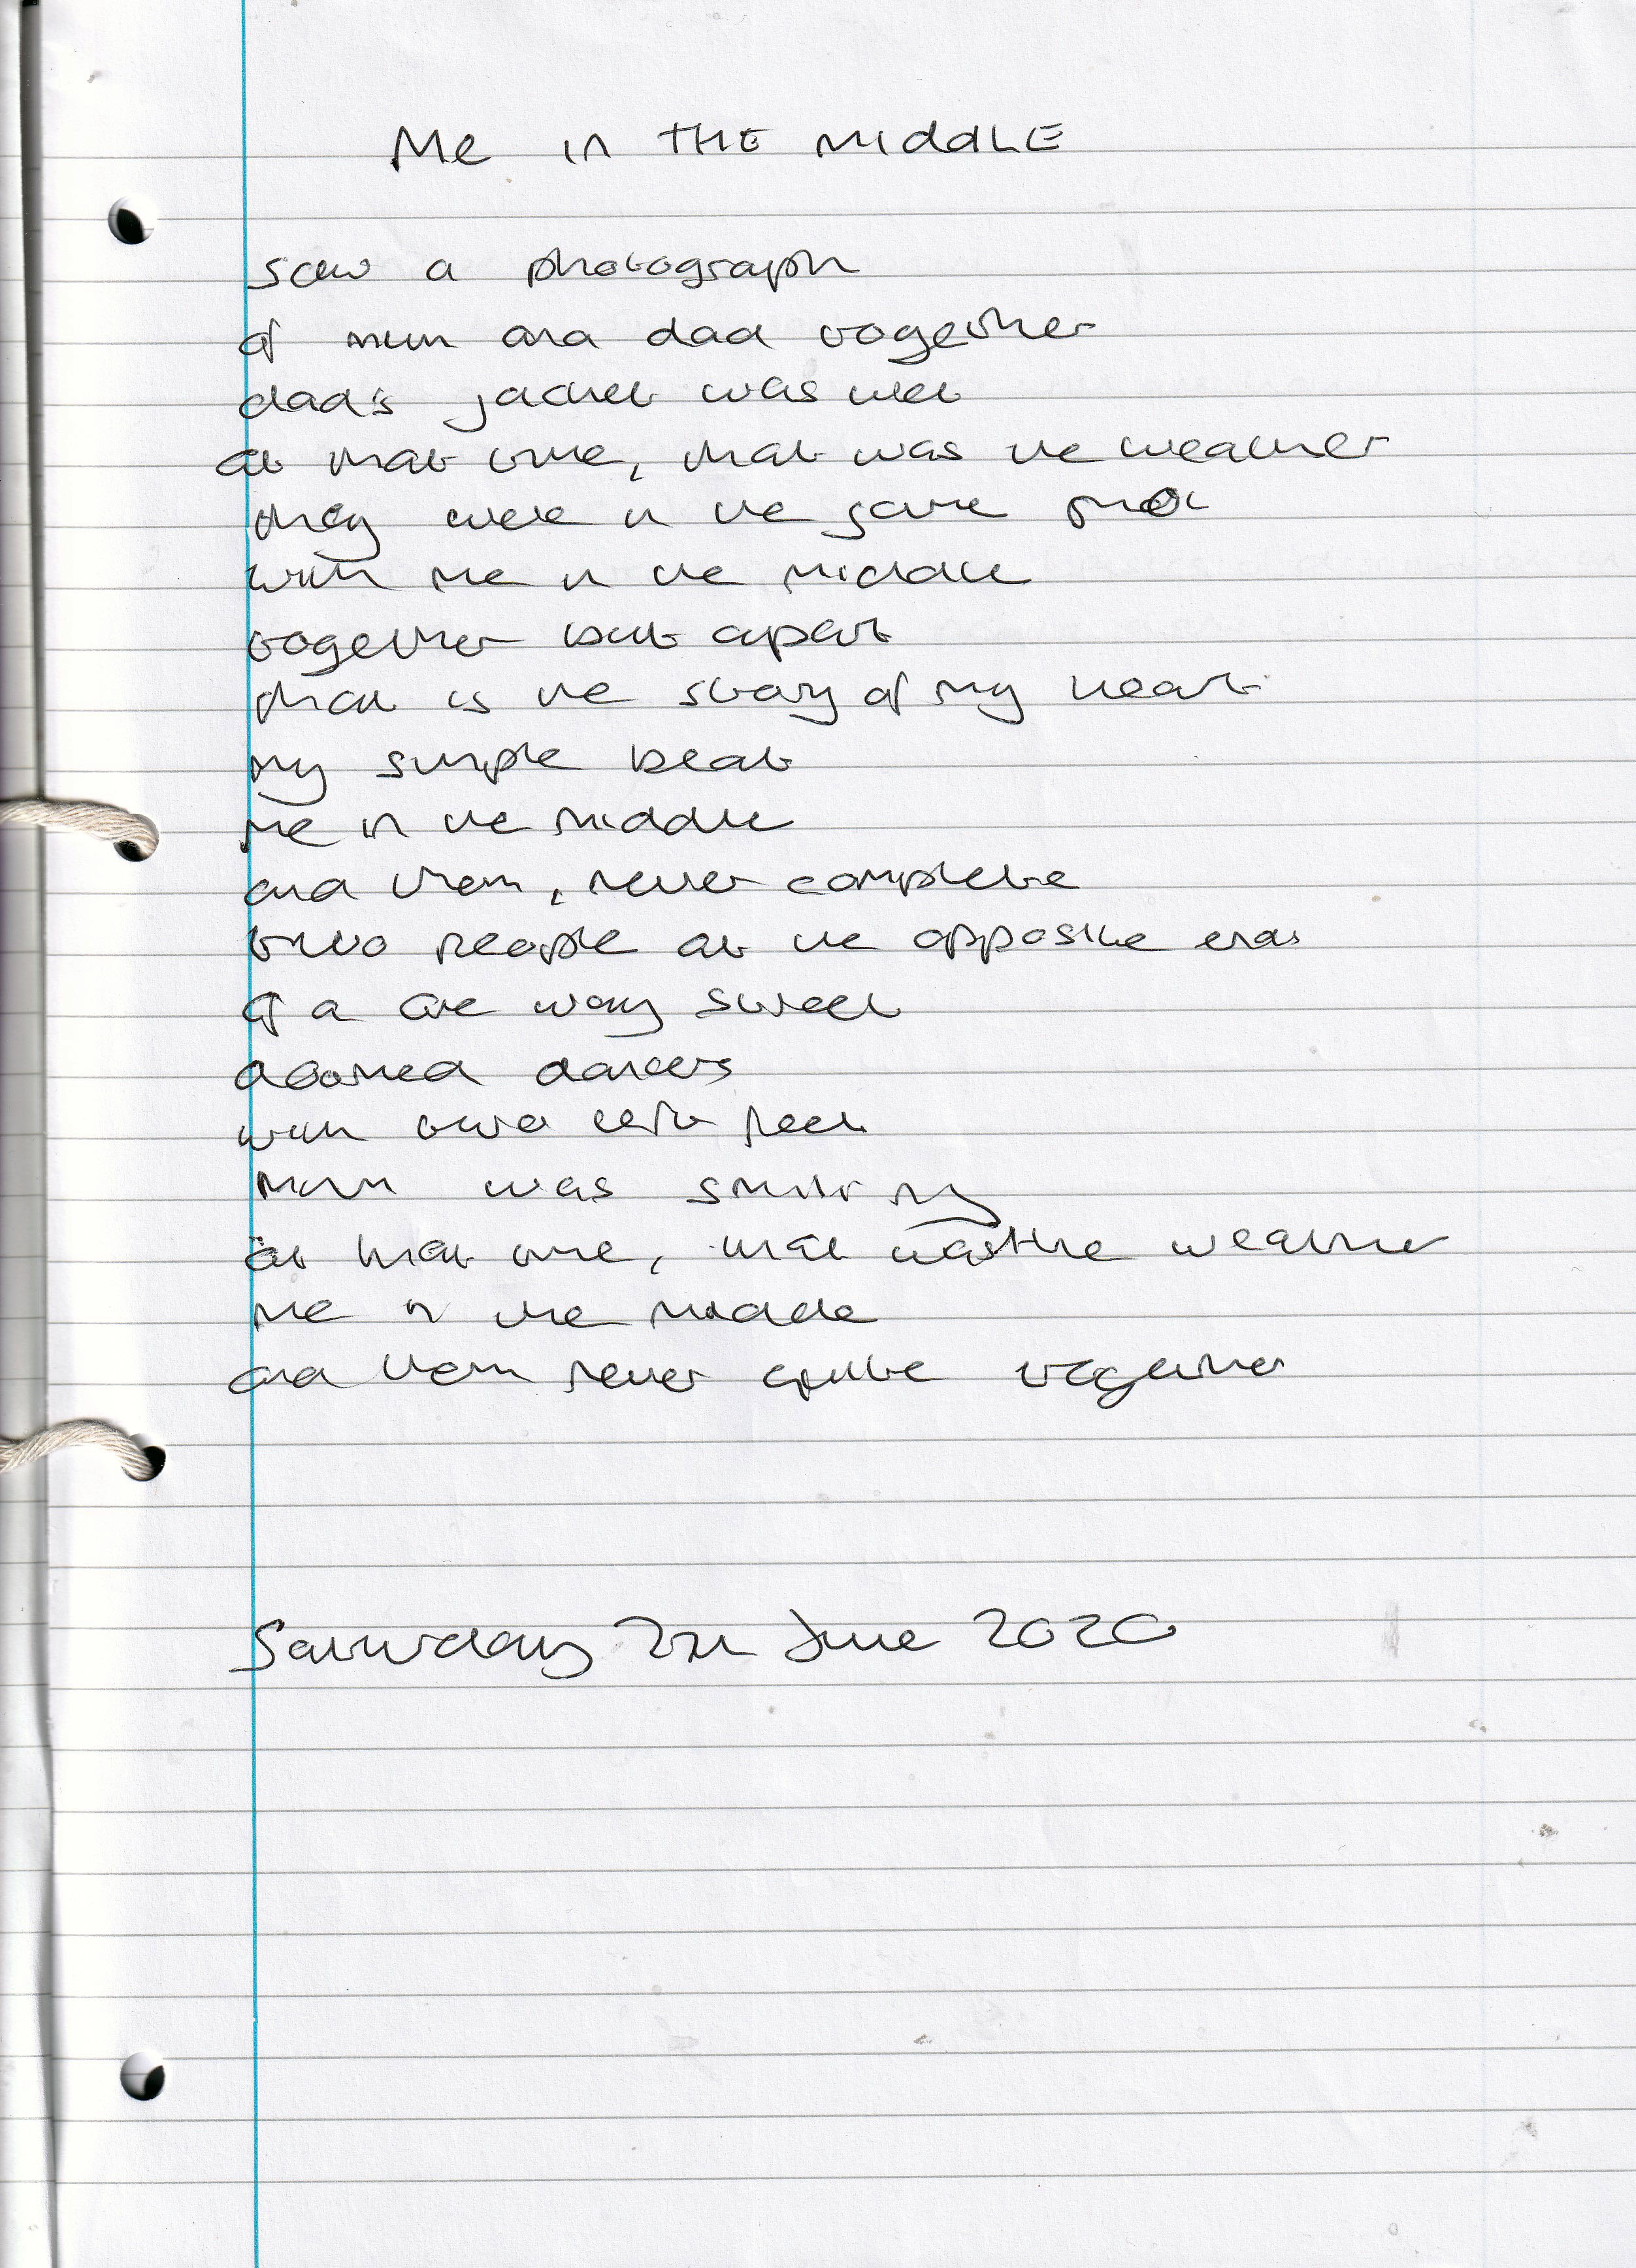 Me in THE MiddLE
saw a photograph
of mum and dad together
dad's jacket was wet
at that time, that was the weather
they were in the same
with me in the middle
together but apart
that is the story of my heart
my simple beat
me in the middle
and them, never complete
two people at the opposite ends
of a one way street
doomed dancers
with two left feet
mum was smiling
at that time, that was the weather
me in the middle
and them never quite together
Saturday June 2020